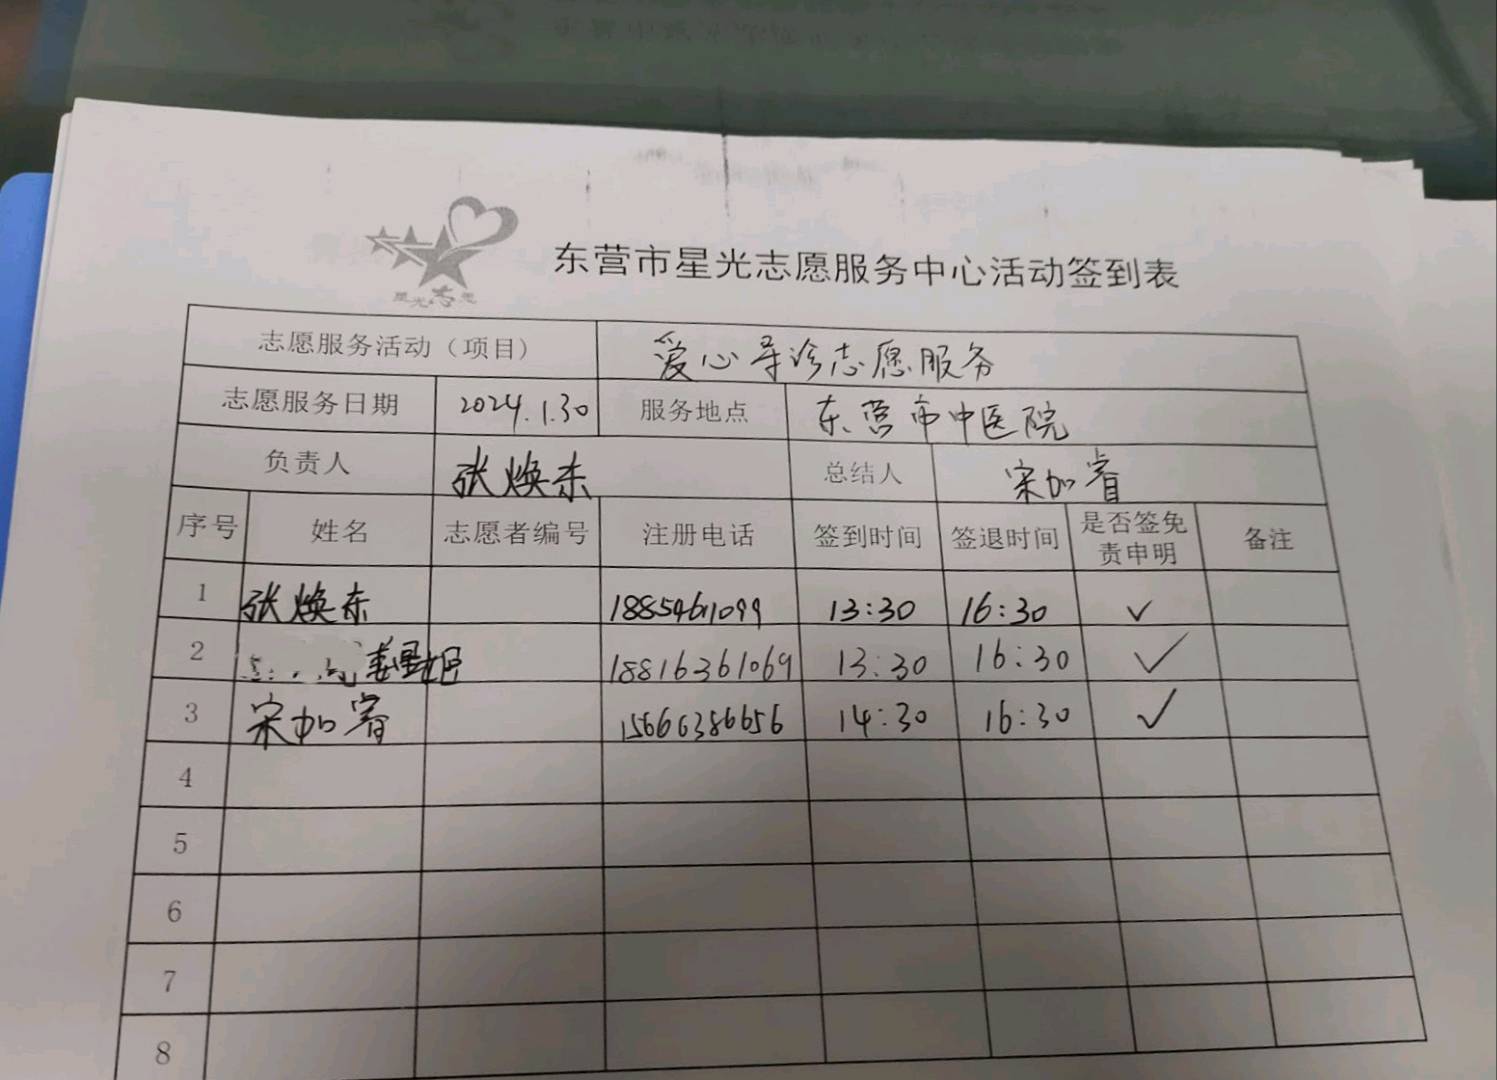 星光志愿
东营市星光志愿服务中心活动签到表
志愿服务活动（项目） 爱心导诊志愿服务
志愿服务日期 2024.1.30 服务地点 东营市中医院
负责人 张焕东 总结人 宋加睿
序号 姓名 志愿者编号 注册电话 签到时间 签退时间 是否签免责申明 备注
1 张焕东 13:30 16:30 ✓
2 18816361069 13:30 16:30 ✓
3 宋加睿 15666386656 14:30 16:30 ✓
4
5
6
7
8